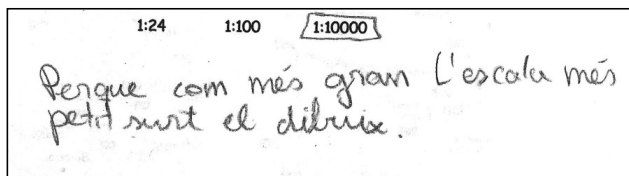 1:24 1:100 1:10000
Perque com més gran l'escala més
petit surt el dibuix.